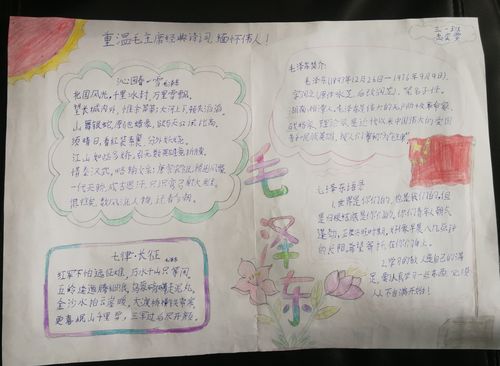 重温毛主席经典诗词, 缅怀伟人!
三·一班
沁园春·雪
北国风光,千里冰封,万里雪飘。
望长城内外,惟余莽莽;大河上下,顿失滔滔。
山舞银蛇,原驰蜡象,欲与天公试比高。
须晴日,看红装素裹,分外妖娆。
江山如此多娇,引无数英雄竞折腰。
惜秦汉武,略输文采;唐宗宋祖,稍逊风骚。
一代天骄,成吉思汗,只识弯弓射大雕。
俱往矣,数风流人物,还看今朝。
毛泽东简介:
毛泽东(1893年12月26日—1976年9月9日),
字润之(原作咏芝,后改润芝),笔名子任。
湖南湘潭人。
毛泽东
毛泽东语录
1.世界是你们的,也是我们的,但
是归根结底是你们的。你们青年人朝气
蓬勃,正在兴旺时期,好像早晨八九点钟
的太阳,希望寄托在你们身上。
3.学习的敌人是自己的满
足,要认真学习一些东西,必须
从不自满开始!
七律·长征
红军不怕远征难,万水千山只等闲。
五岭逶迤腾细浪,乌蒙磅礴走泥丸。
金沙水拍云崖暖,大渡桥横铁索寒。
更喜岷山千里雪,三军过后尽开颜。